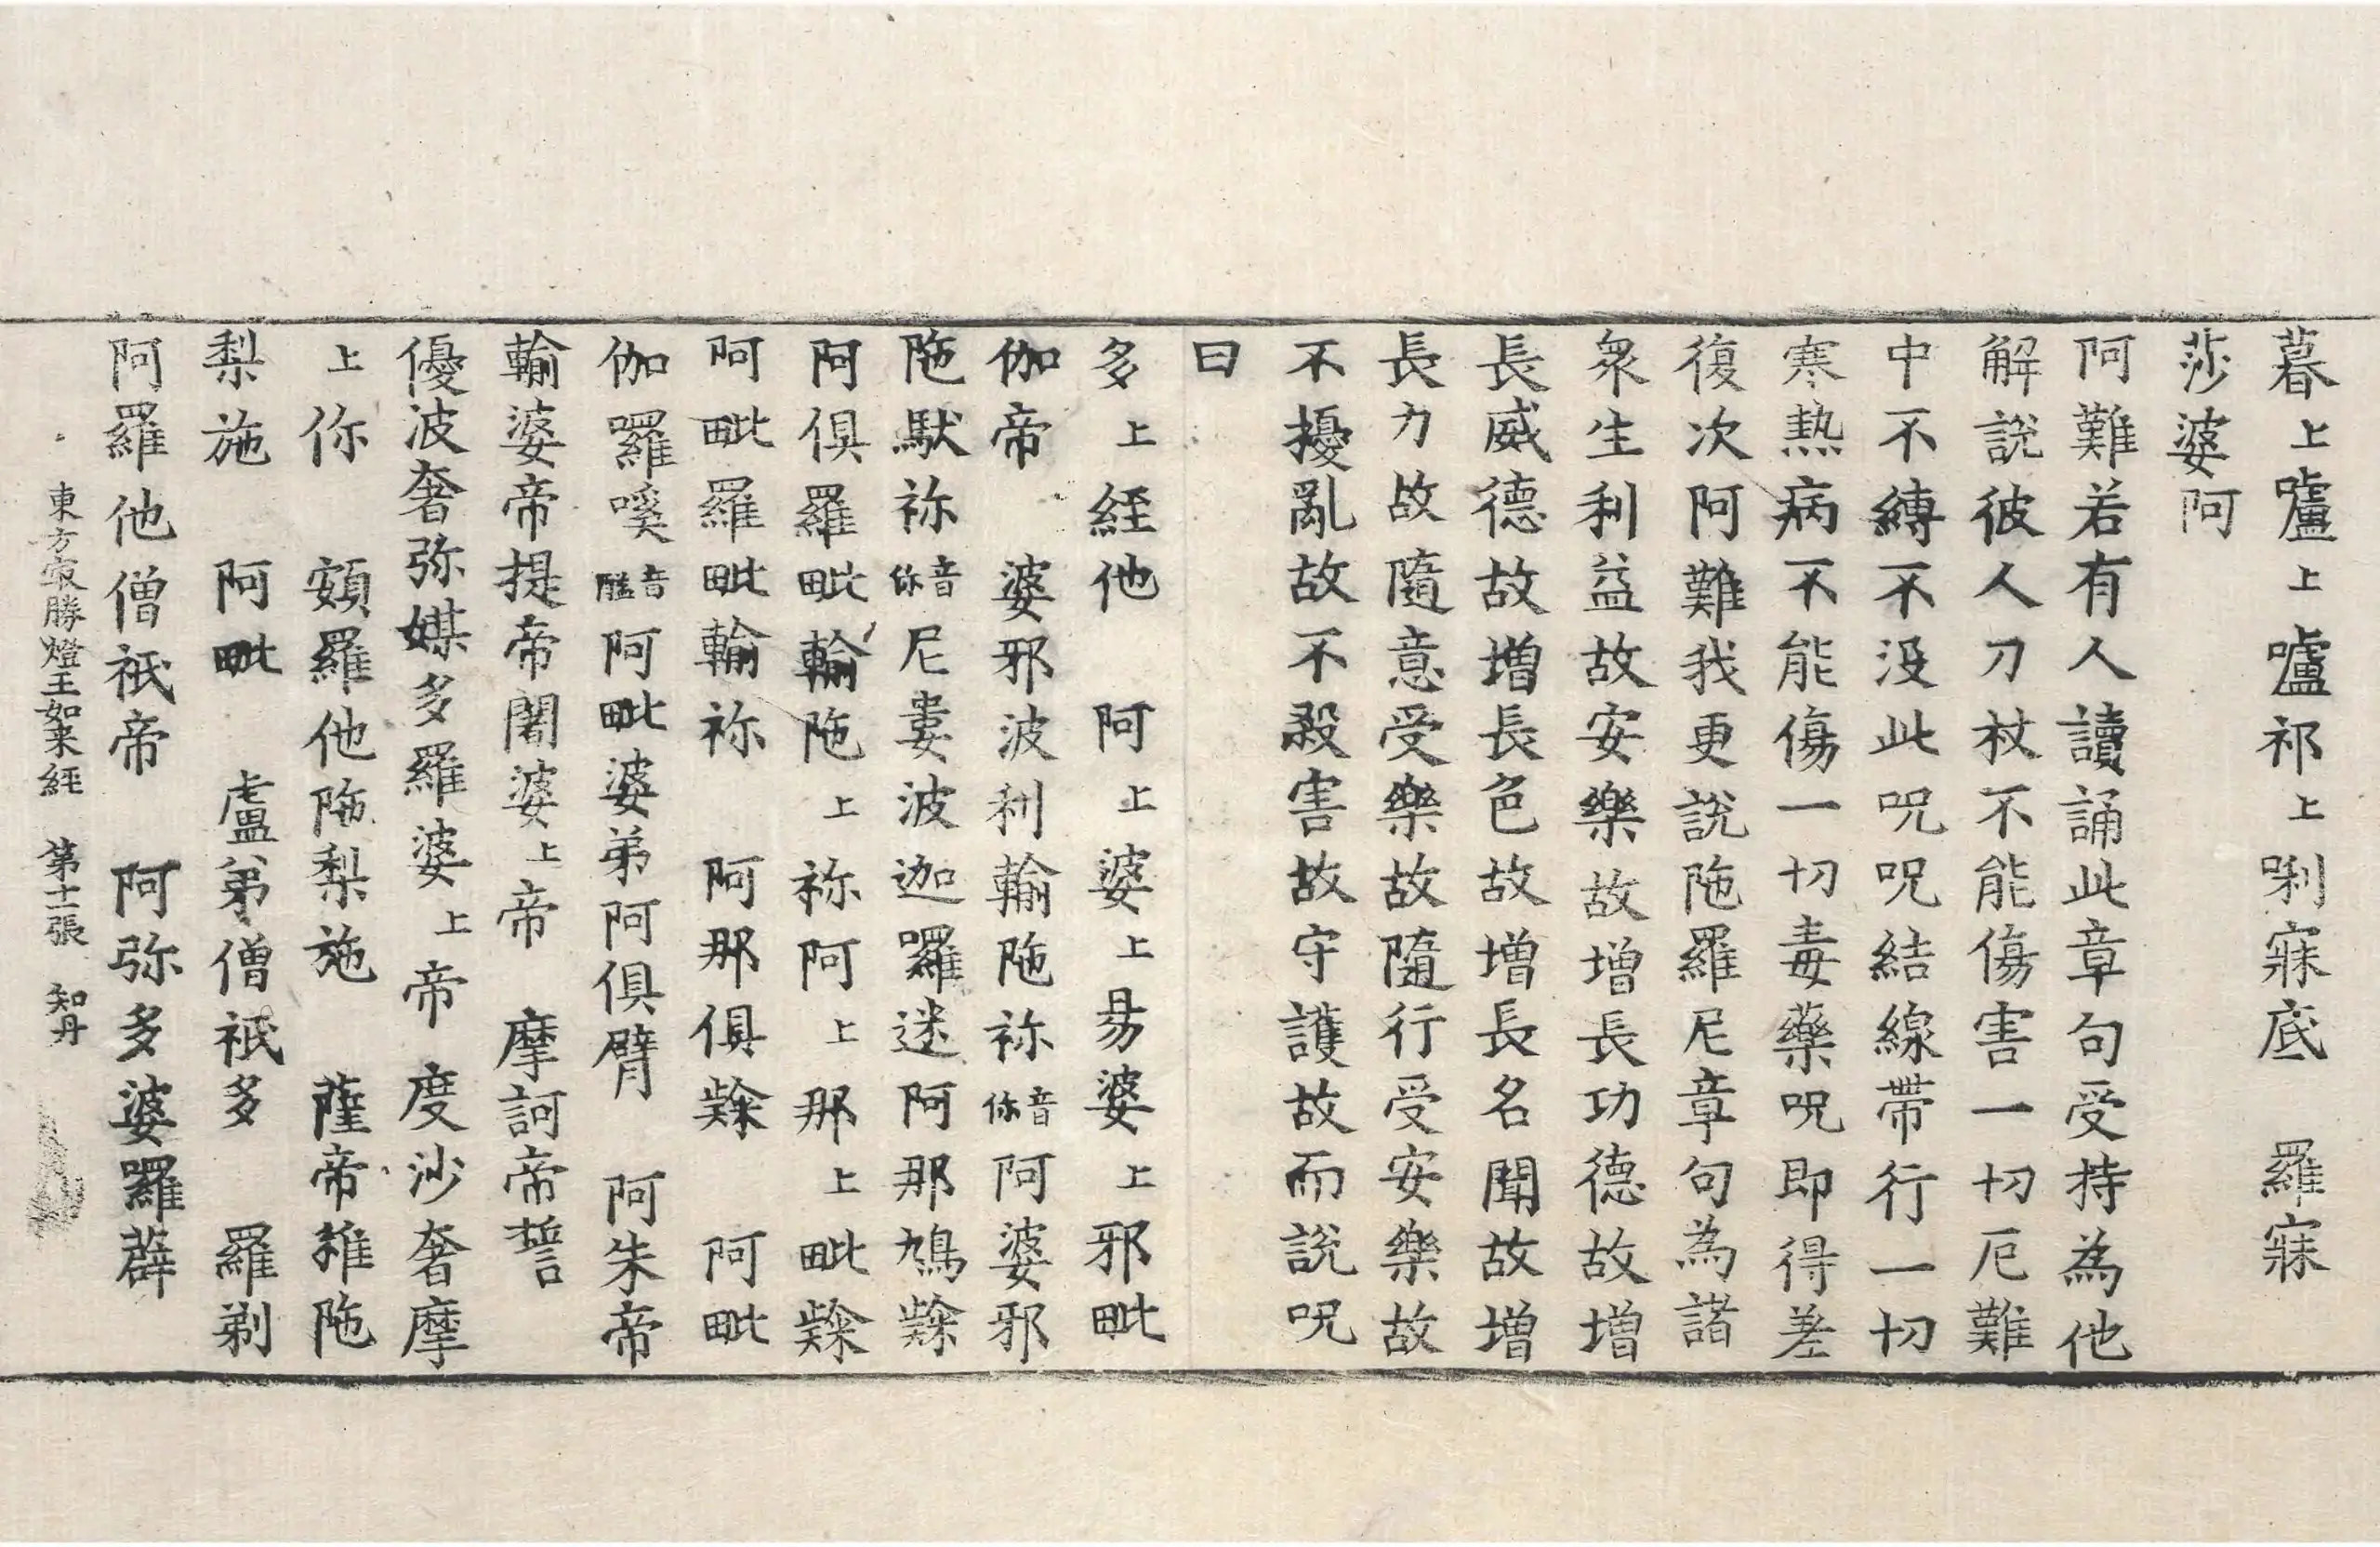 暮上嚧上嚧祁上唎寐底　羅寐
莎婆呵
阿難若有人讀誦此章句受持為他
解說彼人刀杖不能傷害一切厄難
中不縛不没此呪呪結線帶行一切
寒熱病不能傷一切毒藥呪即得差
復次阿難我更說陁羅尼章句為諸
衆生利益故安樂故增長功德故增
長威德故增長色故增長名聞故增
長力故隨意受樂故隨行受安樂故
不擾亂故不殺害故守護故而說呪
曰
多上絰他　阿上婆上易婆上邪毗
伽帝　婆邪波利輸陁祢音你阿婆邪
陁馱祢音你尼婁波迦囉迷阿那鳩
阿俱羅毗輸陁上祢阿上那上毗
阿毗羅毗輸祢　阿那俱　阿毗
伽囉嗘音醯阿毗婆弟阿俱臂　阿朱帝
輸婆帝提帝闍婆上帝　摩訶帝誓
優波奢弥媒多羅婆上帝　度沙奢摩
上你　頞羅他陁梨施　薩帝雉陁
梨施　阿毗　盧弟僧祇多　羅剃
阿羅他僧祇帝　阿弥多婆囉薜
東方寂勝燈王如来經　第十二張　智丹